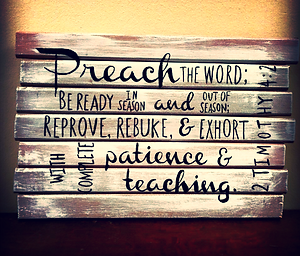 Preach THE WORD;
BE READY IN SEASON and OUT OF SEASON;
REPROVE, REBUKE, & EXHORT
WITH COMPLETE patience &
teaching.
2 TIMOTHY 4:2